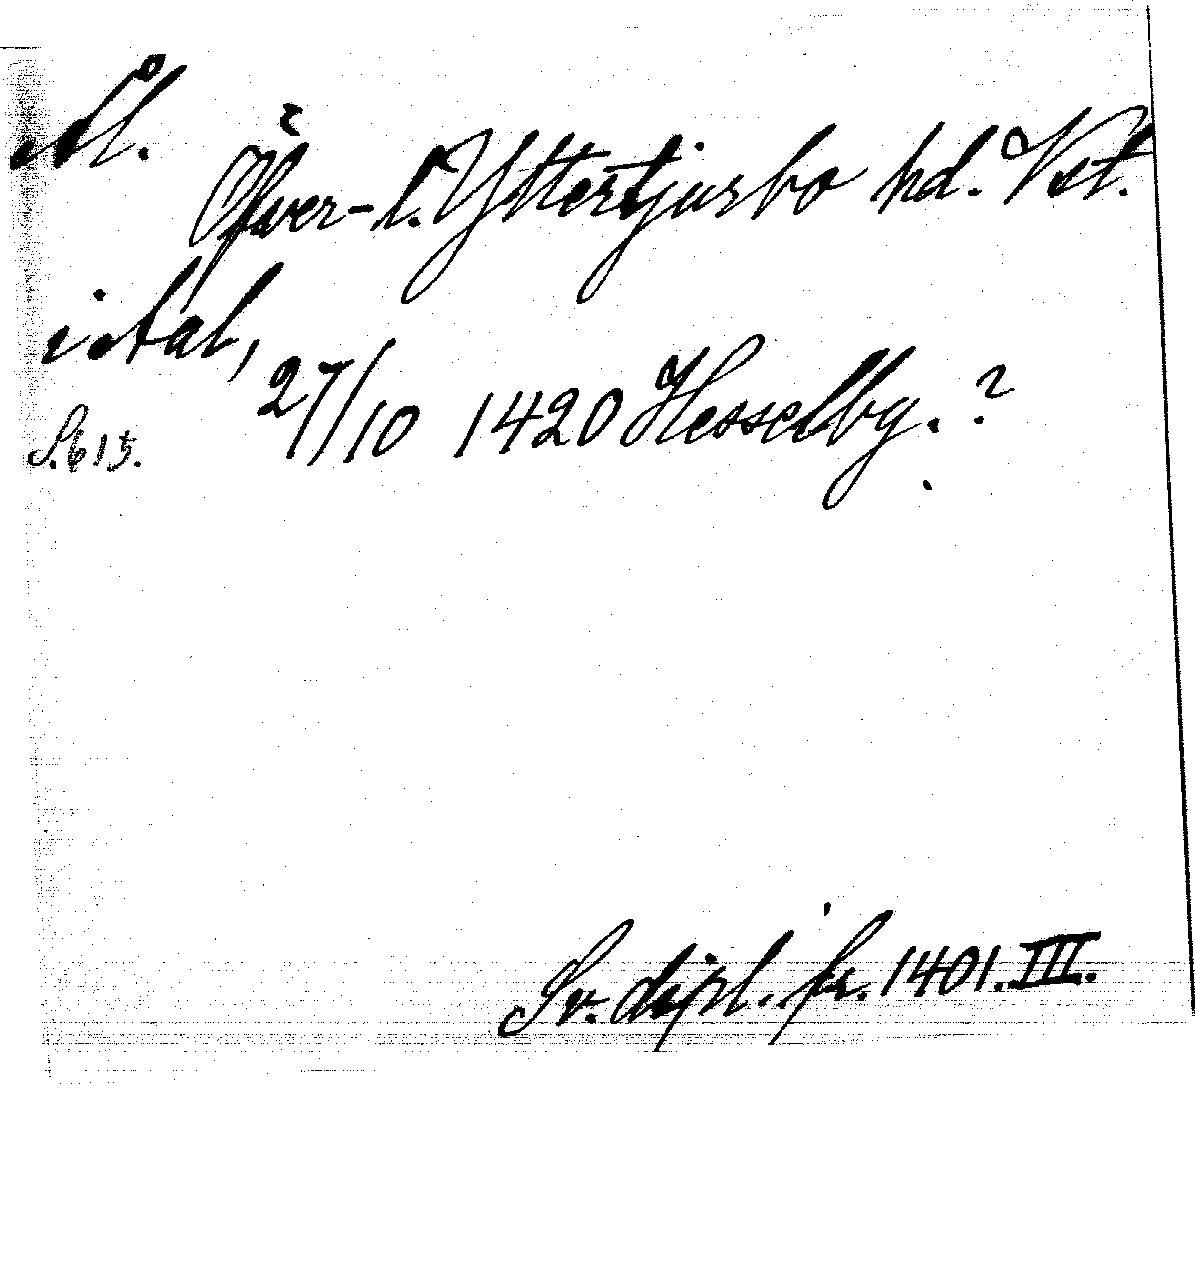 Ål.
Öfver- l. Yttertjurbo hd. Vst.
i Aal,
27/10 1420 Hesselby. ?
S. 615.
Sv. dipl. fr. 1401. III.